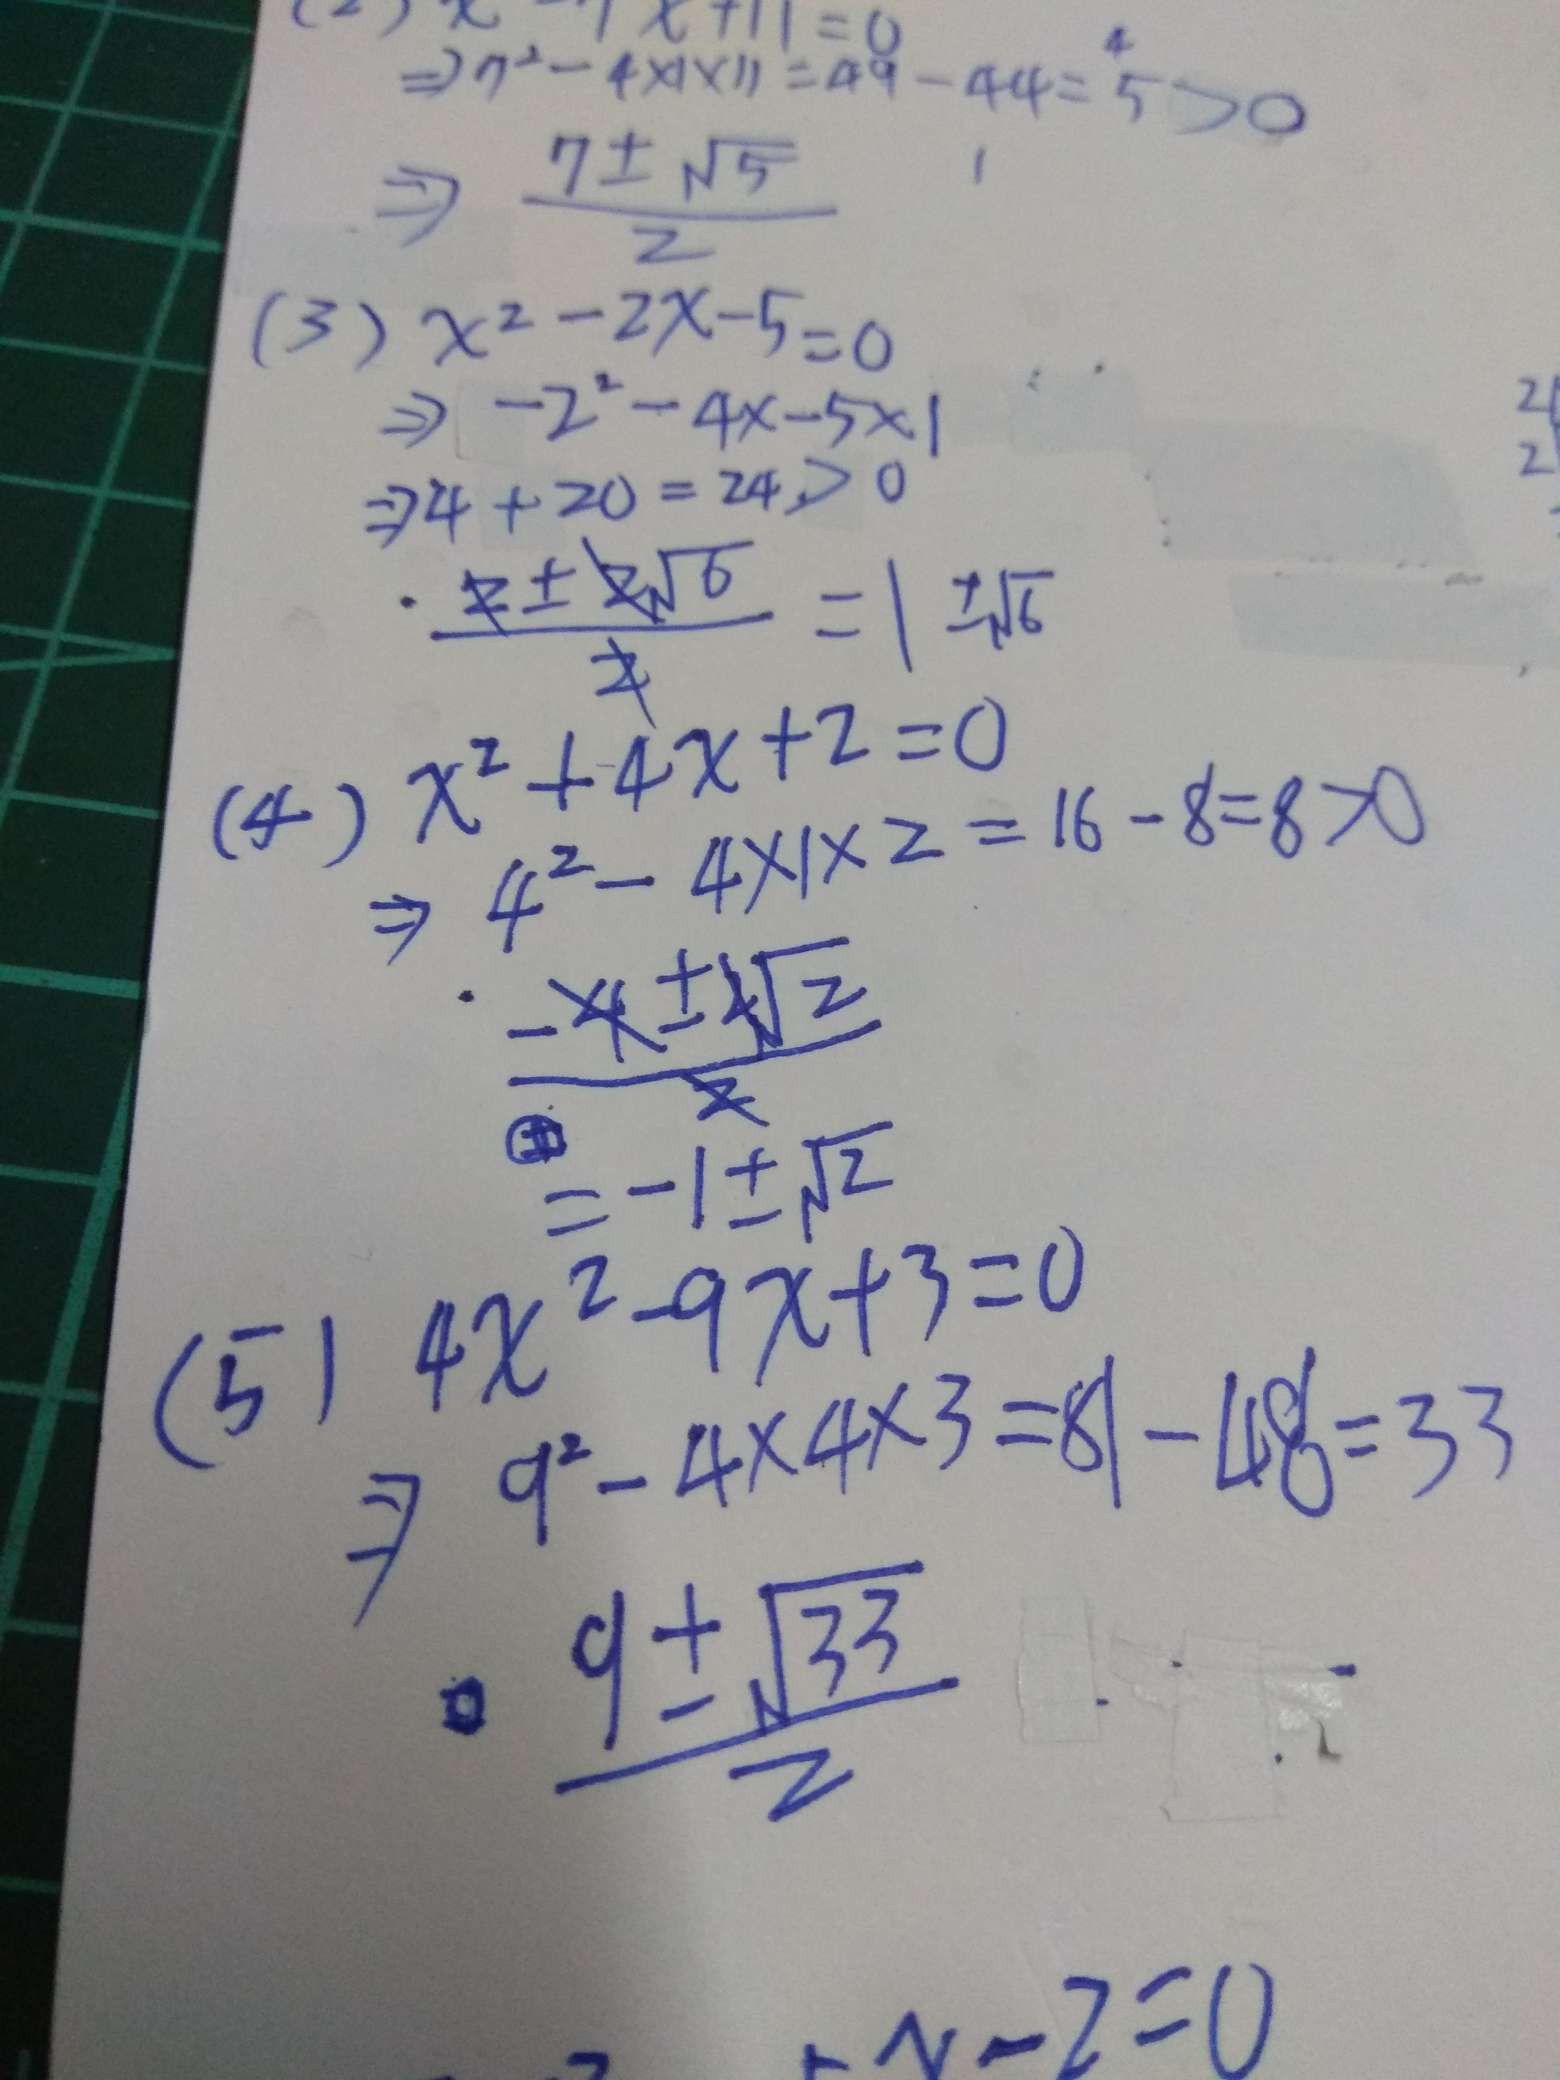 (2) x² - 7x + 11 = 0
⇒ 7² - 4×1×11 = 49 - 44 = 5 > 0
⇒ (7 ± √5) / 2
(3) x² - 2x - 5 = 0
⇒ -2² - 4x - 5×1
⇒ 4 + 20 = 24 > 0
· (2 ± 2√6) / 2 = 1 ± √6
(4) x² + 4x + 2 = 0
⇒ 4² - 4×1×2 = 16 - 8 = 8 > 0
· (-4 ± 2√2) / 2
= -1 ± √2
(5) 4x² - 9x + 3 = 0
⇒ 9² - 4×4×3 = 81 - 48 = 33
(9 ± √33) / 2
- 2 = 0